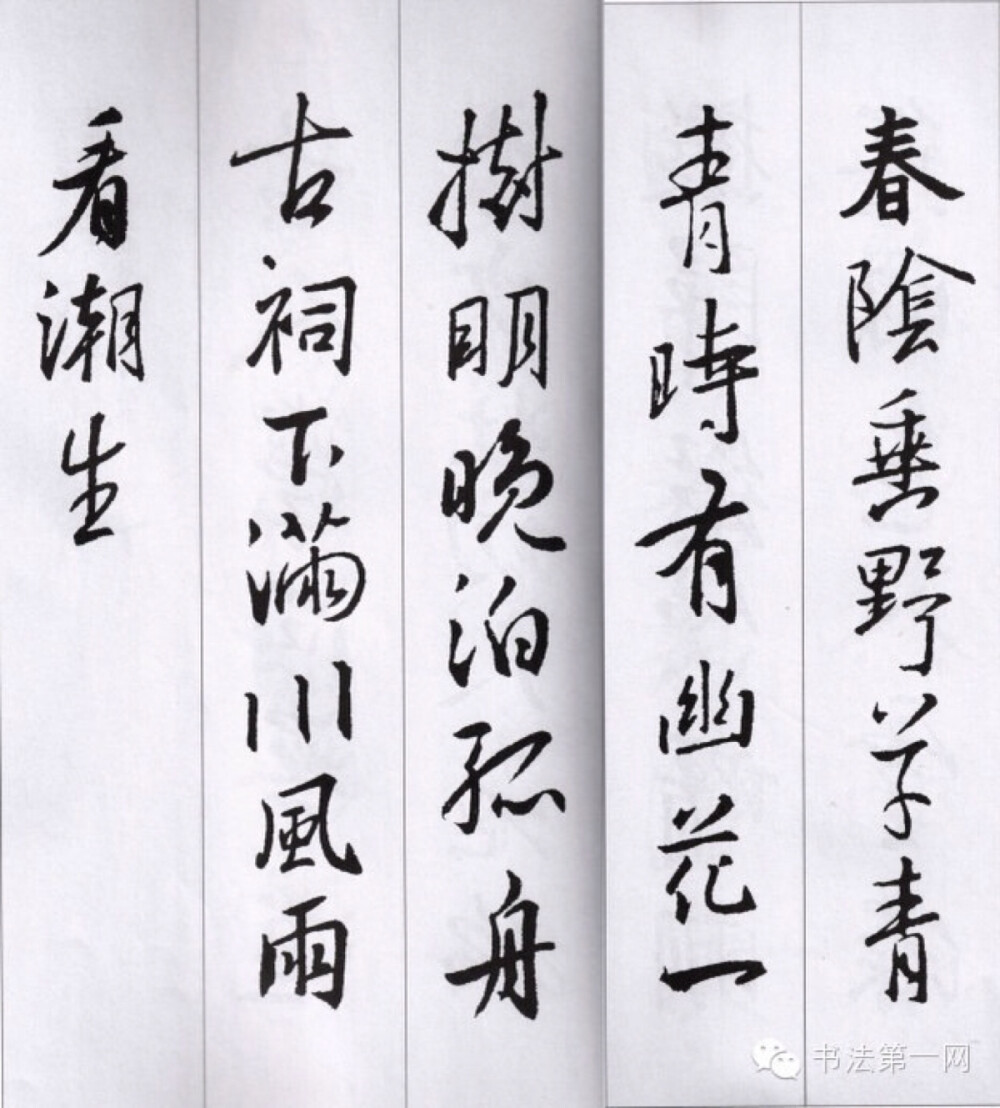 春陰垂野草青
青時有幽花一
樹明晚泊孤舟
古祠下滿川風雨
看潮生
书法第一网